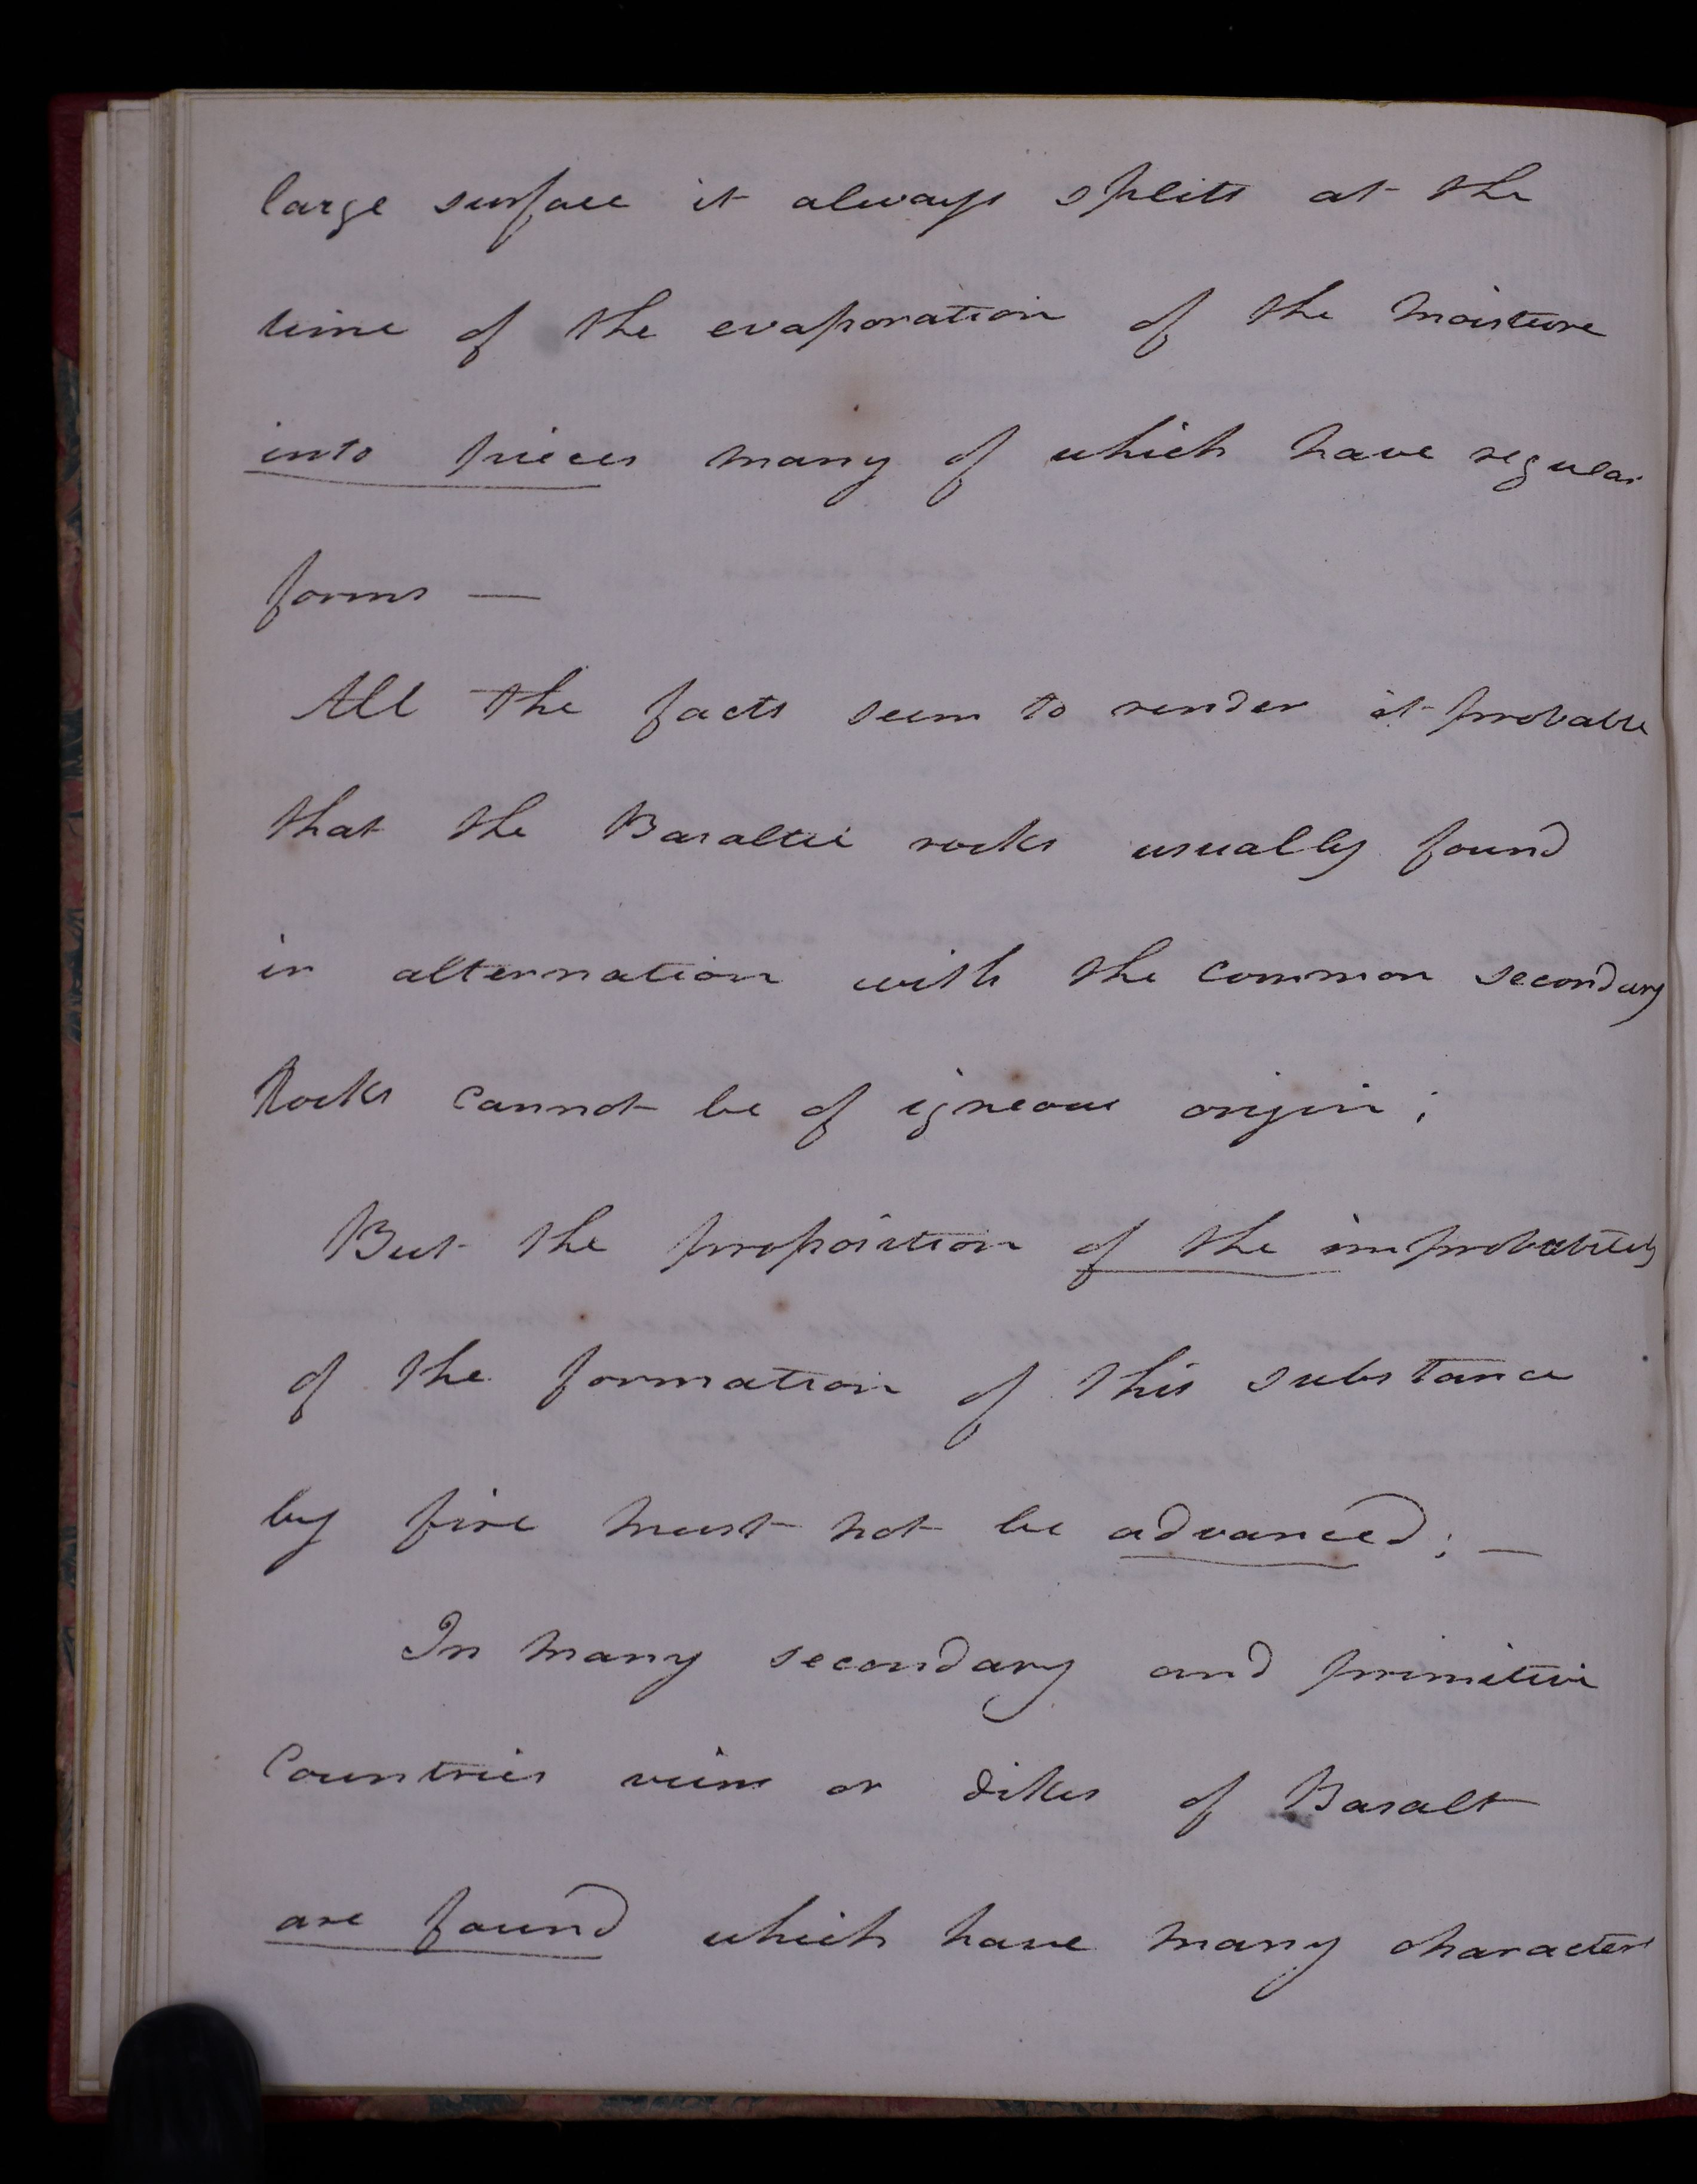 large surface it always splits at the
time of the evaporation of the moisture
into pieces many of which have regular
forms —
All the facts seem to render it probable
that the Basaltic rocks usually found
in alternation with the common secondary
Rocks cannot be of igneous origin;
But the proposition of the improbability
of the formation of this substance
by fire must not be advanced; —
In many secondary and primitive
Countries veins or dikes of Basalt
are found which have many character